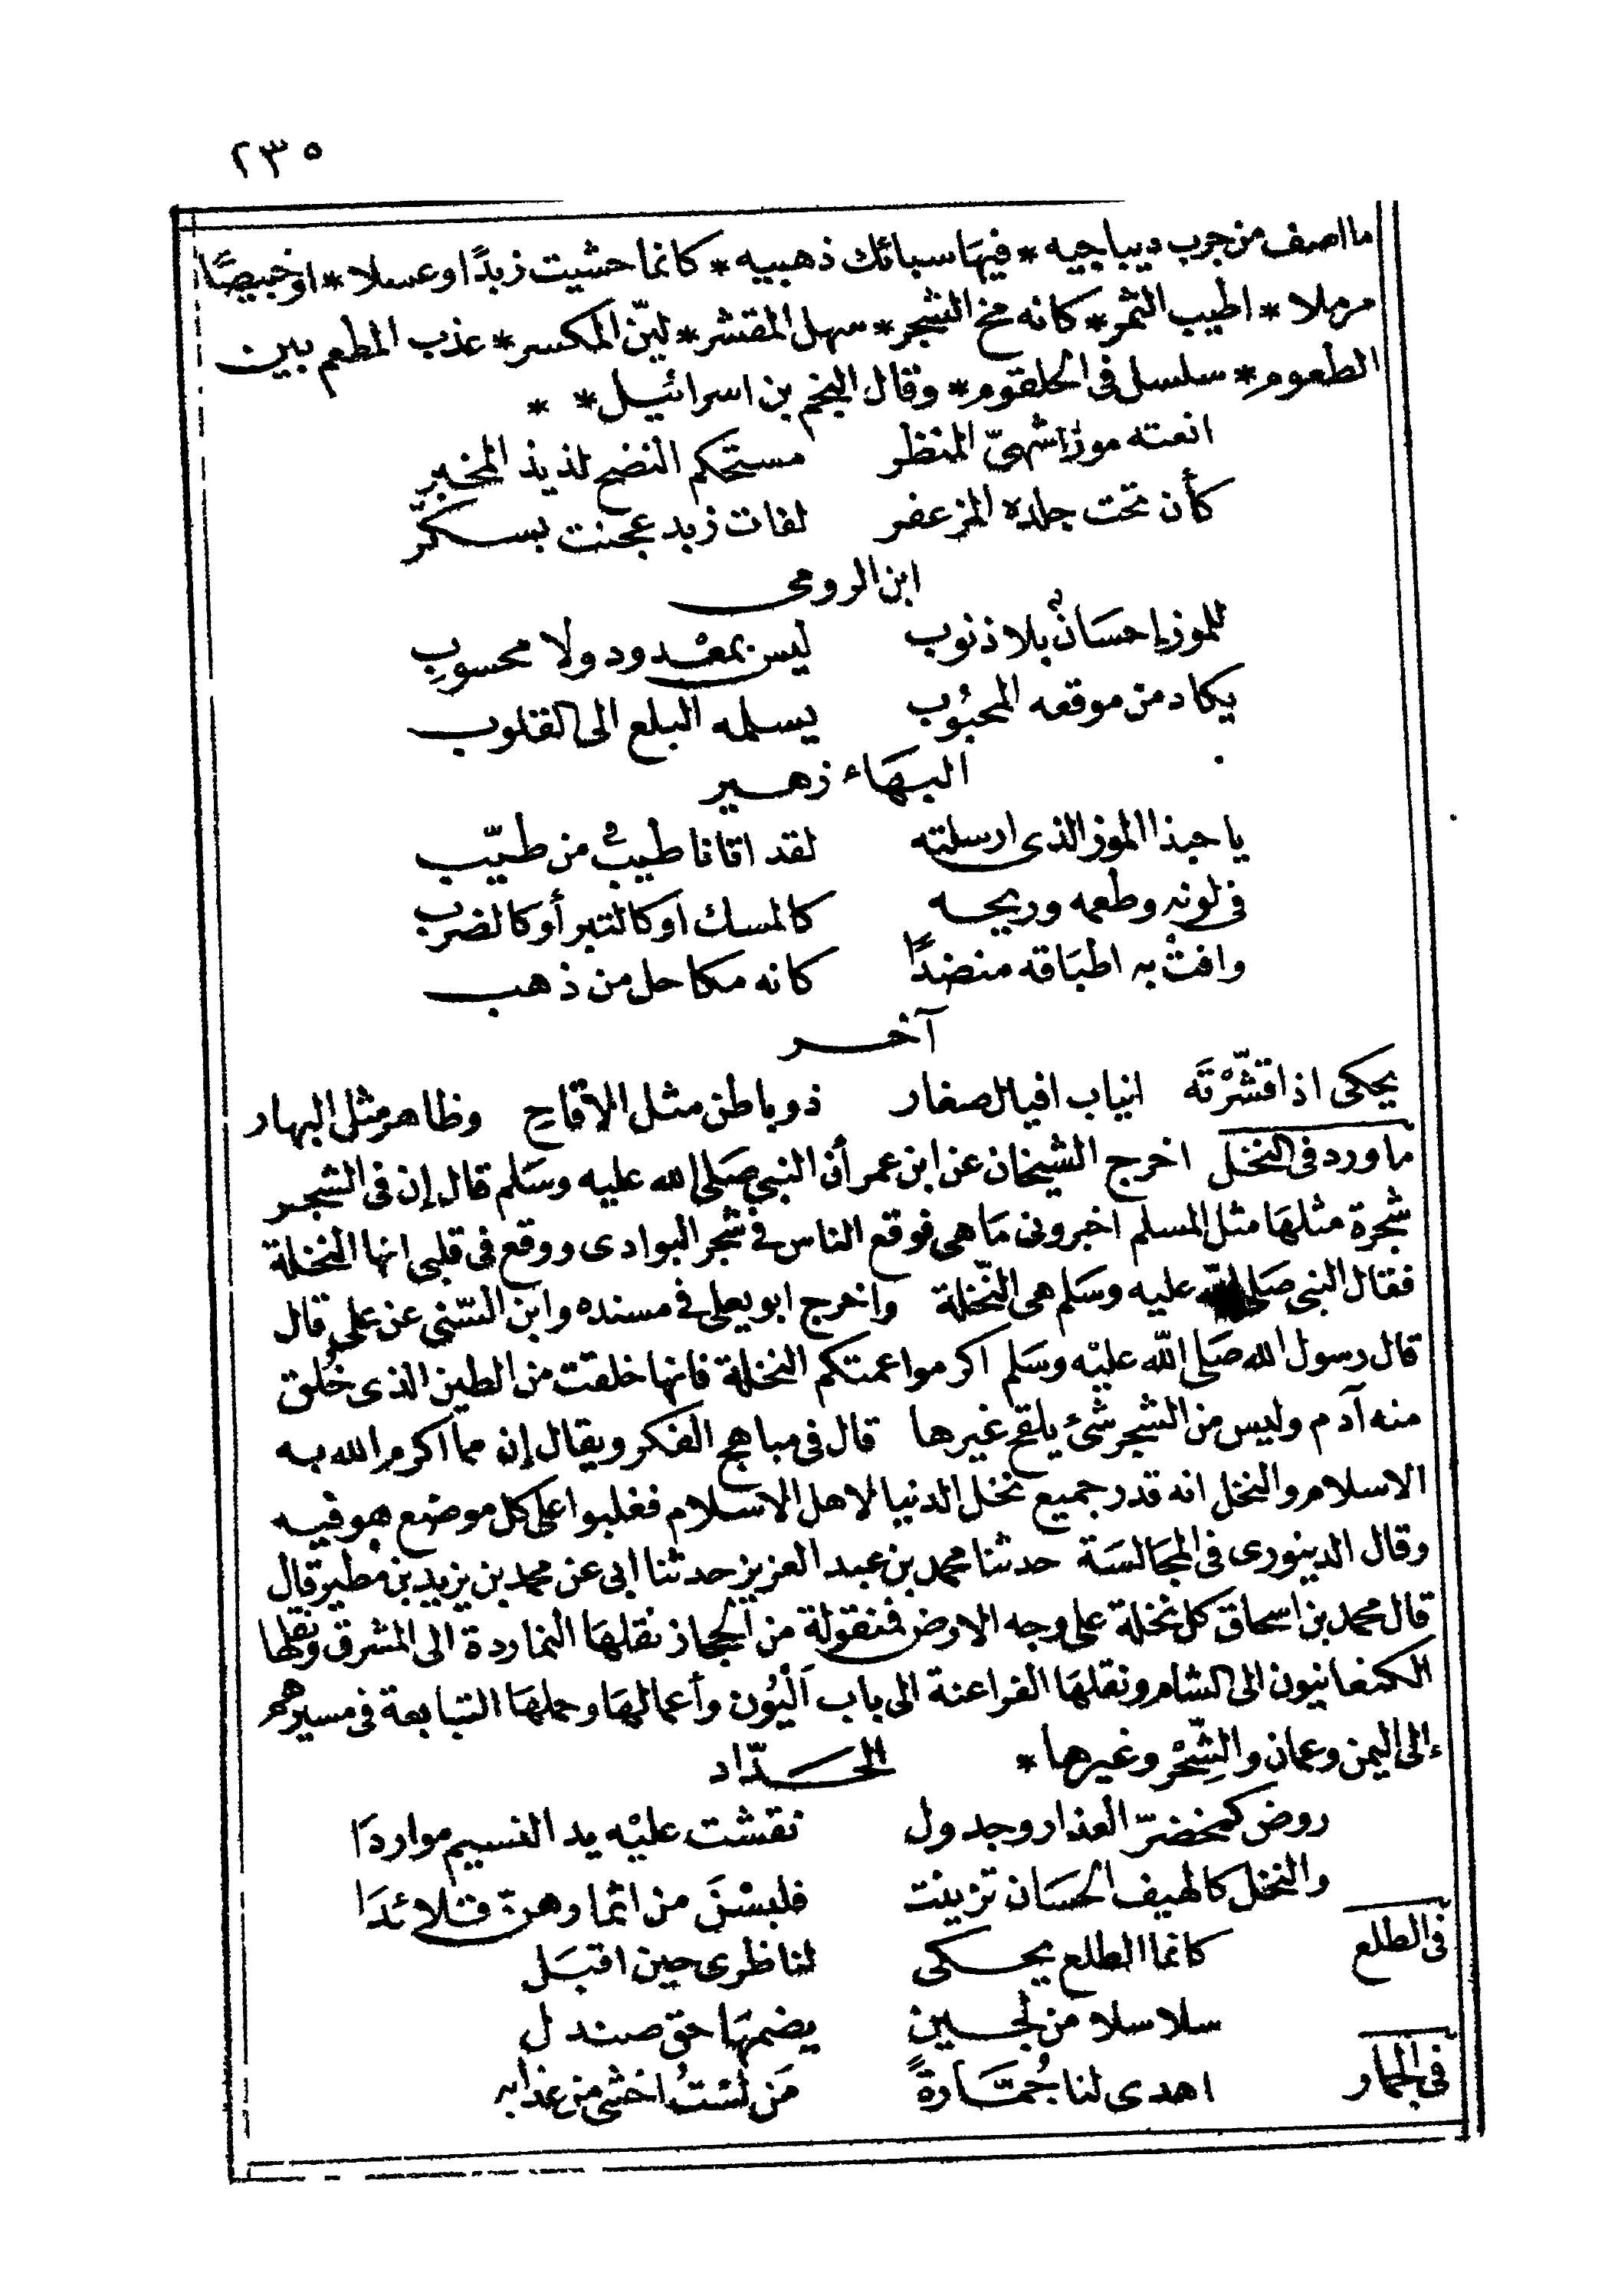 ٢٣٥
ما اصف من جرب ديباجيه * فيها سبائك ذهبيه * كانما حشيت زبدًا او عسلا * او خبيصًا
مرملا * اطيب الثمر * كانه مخ الشجر * سهل المقشر * ليّن المكسر * عذب المطعم بين
الطعوم * سلسل فى الحلقوم * وقال النجم بن اسرائيل * *
انعته موزا شهىّ المنظر مستحكم النضج لذيذ المخبر
كأن تحت جلده المزعفر لفات زبد عجنت بسكّر
ابن الرومى
للموز إحسانٌ بلا ذنوب ليس بمعْدود ولا محسوبِ
يكاد من موقعه المحبُوب يسلمه البلع الى القلوب
البهاء زهير
يا حبذا الموز الذى ارسلته لقد اتانا طيبٌ من طيّب
فى لونه وطعمه وريحه كالمسك او كالتبر أو كالضرب
وافتْ به اطباقه منضدًا كانه مكاحل من ذهب
آخر
يحكى اذا قشّرْتَه انياب افيال صغار ذو باطن مثل الاقاح وظاهر مثل البهار
ما ورد فى النخل اخرج الشيخان عن ابن عمر أن النبي صَلى الله عليه وسَلم قال إن فى الشجر
شجرة مثلها مثل المسلم اخبرونى مَا هى فوقع الناس فى شجر البوادى ووقع فى قلبى انها النخلة
فقال النبى صَلى الله عليه وسَلم هى النّخلة واخرج ابو يعلى فى مسنده وابن السّنى عن على قال
قال رسول الله صَلى الله عليْه وسَلم اكرموا عمتكم النخلة فانها خلقت من الطين الذى خُلق
منه آدم وليس من الشجر شئ يلقح غيرها قال فى مباهج الفكر ويقال إن مما اكرم الله به
الاسلام والنخل انه قدر جميع نخل الدنيا لاهل الاسلام فغلبوا على كل موضع هو فيه
وقال الدينورى فى المجَالسَة حدثنا محمد بن عبد العزيز حدثنا ابى عن محمد بن يزيد بن مطير قال
قال محمد بن اسحاق كل نخلة على وجه الارض فمنقولة من الحجاز نقلهَا النماردة الى المشرق ونقلها
الكنعانيون الى الشام ونقلهَا الفراعنة الى باب اَلْيُون وأعمالهَا وحملهَا التبابعة فى مسيرهم
إلى اليمن وعمان والشِّحْر وغيرها * الحدّاد
روض كمخضرّ العذار وجدول نقشت عليْه يد النسيم مواردَا
والنخل كالهيف الحسَان تزينت فلبسْنَ من اثمارهنّ قلائدَا
فى الطلع كانما الطلع يحكى لناظرى حين اقبَل
سلاسلا من لجين يضمهَا حق صندل
فى الجمار اهدى لنا جُمّارةً مَن لسْتُ اخشى من عذابه